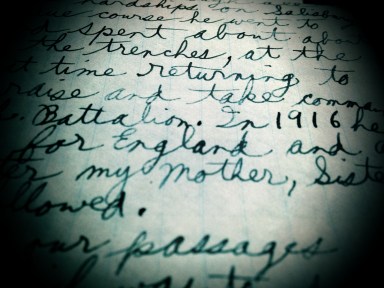 hardships on Salisbury
course he went to
spent about about
the trenches, at the
time returning to
raise and take comma
Battalion. In 1916 he
for England and
my Mother, Siste
llowed.
our passages